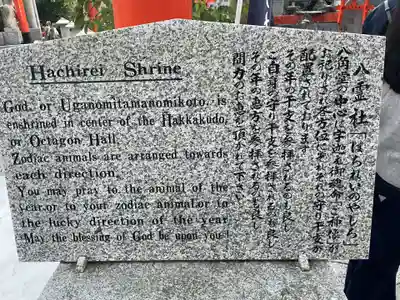 Hachirei Shrine
God, or Uganomitamanomikoto, is
enshrined in center of the Hakkakudo,
or Octagon Hall.
Zodiac animals are arranged towards
each direction.
You may pray to the animal of the
year,or to your zodiac animal,or to
the lucky direction of the year
May the blessing of God be upon you!
八霊社「はちれいのやしろ」
八角堂の中心に宇迦之御魂命の神様が
お祀りされ各方位に
配置されております
その年の干支を参拝されるも良し
ご自身の守り干支を参拝されるも良し
その年の恵方を参拝されるも良し
開力のご神徳を頂いて下さい